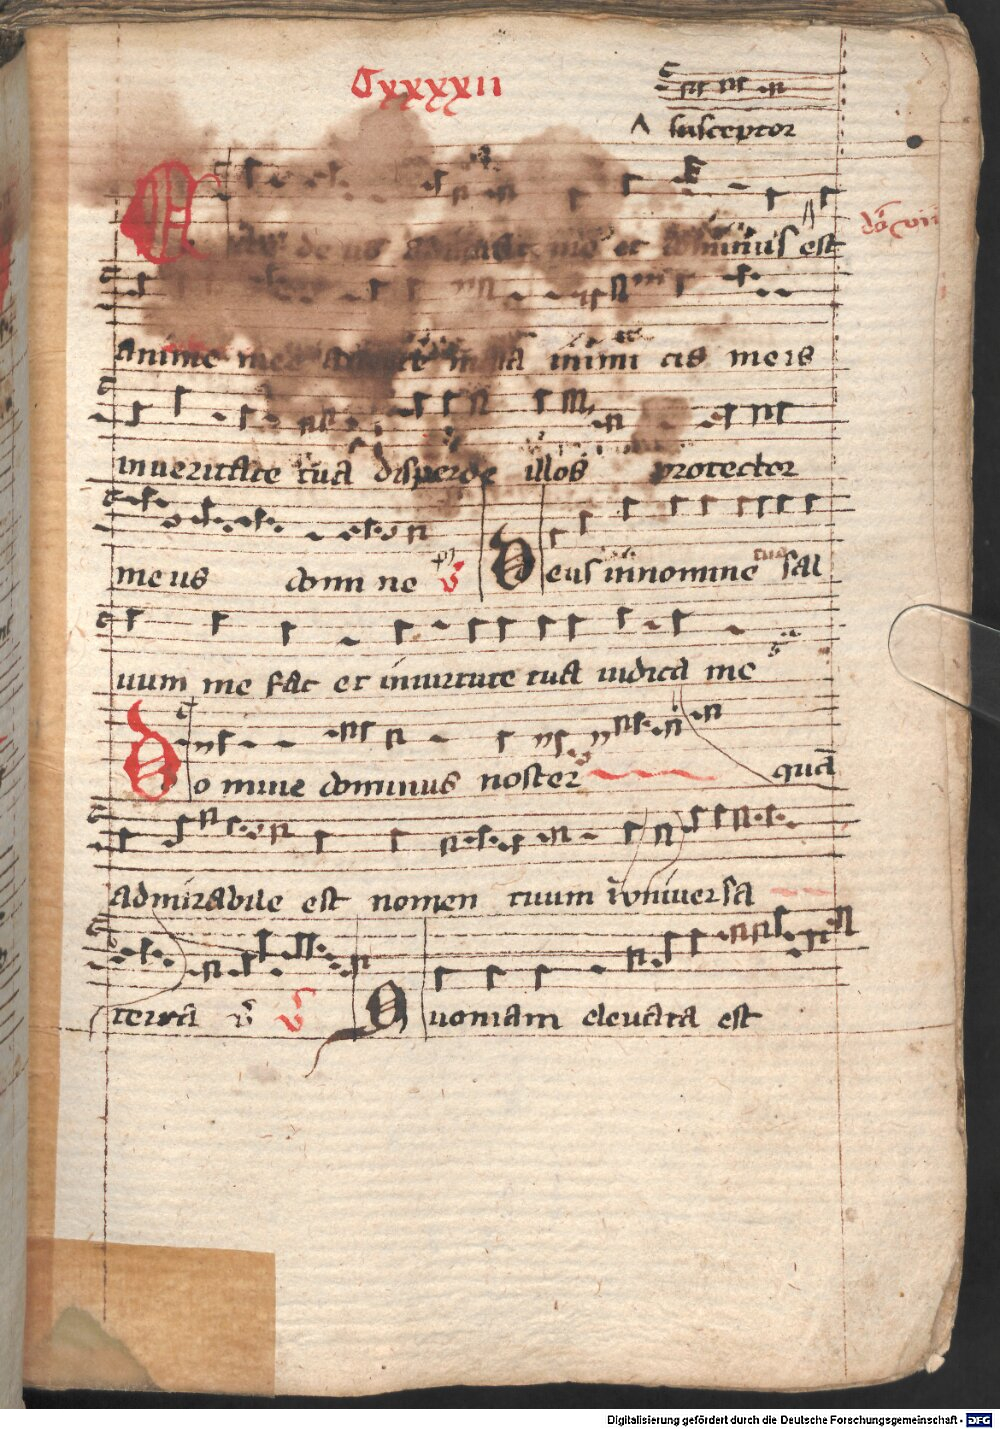 Cxxxxii
susceptor
deus adiuvat me et dominus est
do͞ vii
anime mee averte mala inimi cis meis
inveritate tua disperde illos protector
meus domi ne ps v̄ Deus in nomine tuo sal
uum me fac et in virtute tua iudica me
Domine dominus noster quā
admirabile est nomen tuum in universa
terra v̄ v̄ Quoniam elevata est
Digitalisierung gefördert durch die Deutsche Forschungsgemeinschaft - DFG